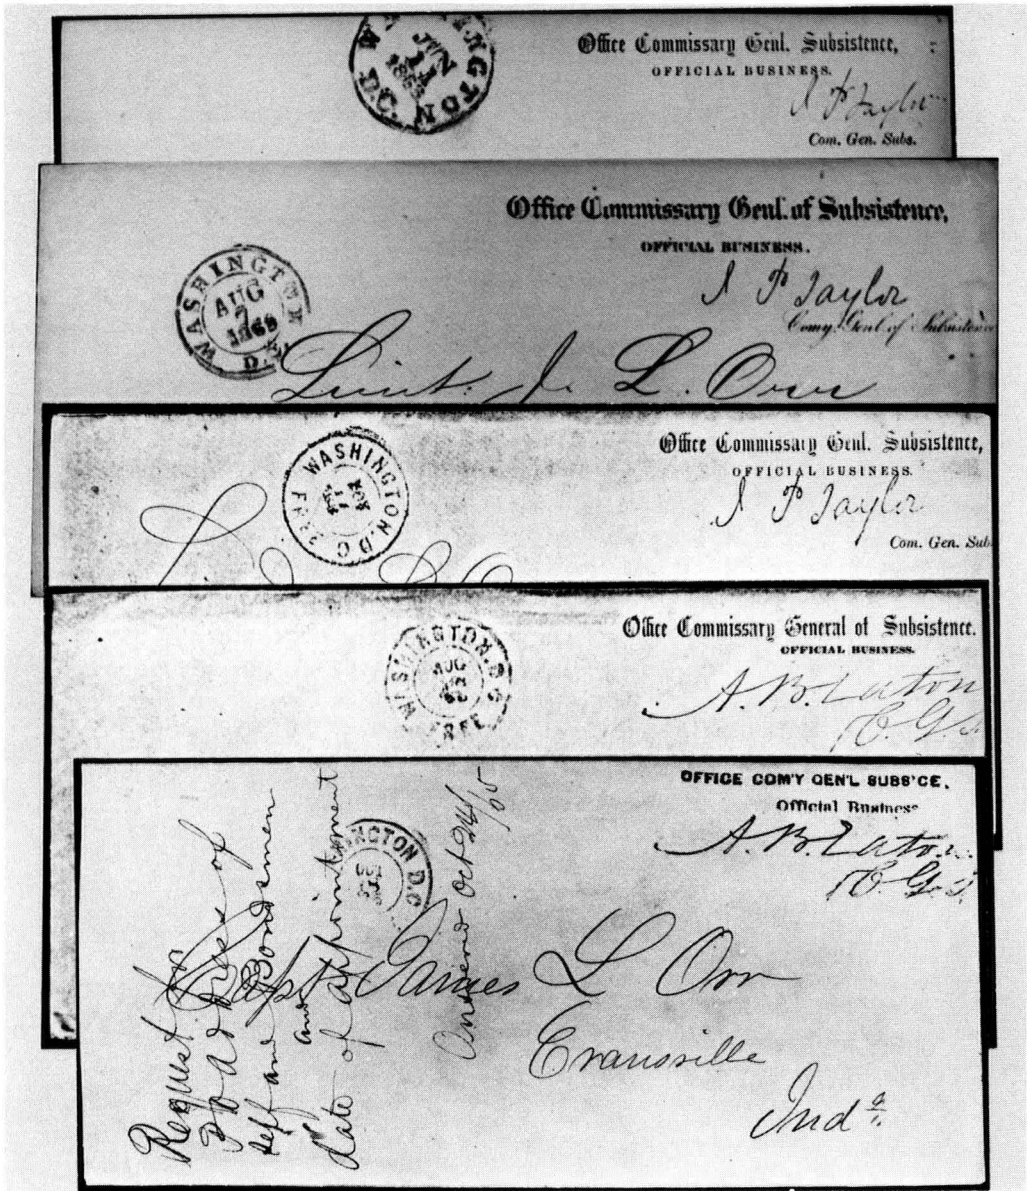 WASHINGTON D.C.
JUN
Office Commissary Genl. Subsistence,
OFFICIAL BUSINESS.
J P Taylor
Com. Gen. Subs.
Office Commissary Genl. of Subsistence,
OFFICIAL BUSINESS.
J P Taylor
Comy. Genl of Subsistence
WASHINGTON D.C.
AUG
7
Lieut. J. L. Orr
Office Commissary Genl. Subsistence,
OFFICIAL BUSINESS.
J P Taylor
Com. Gen. Sub
WASHINGTON. D.C. FREE
17
Office Commissary General of Subsistence.
OFFICIAL BUSINESS.
A. B. Eaton
C. G. S.
WASHINGTON. D.C. FREE
AUG
OFFICE COM'Y GEN'L SUBS'CE.
Official Business
A. B. Eaton
C. G. S.
INGTON D.C
Capt James L Orr
Evansville
Inda.
Request for
P O address of
self and Bondsmen
and
date of appointment
Answered Oct 24/65